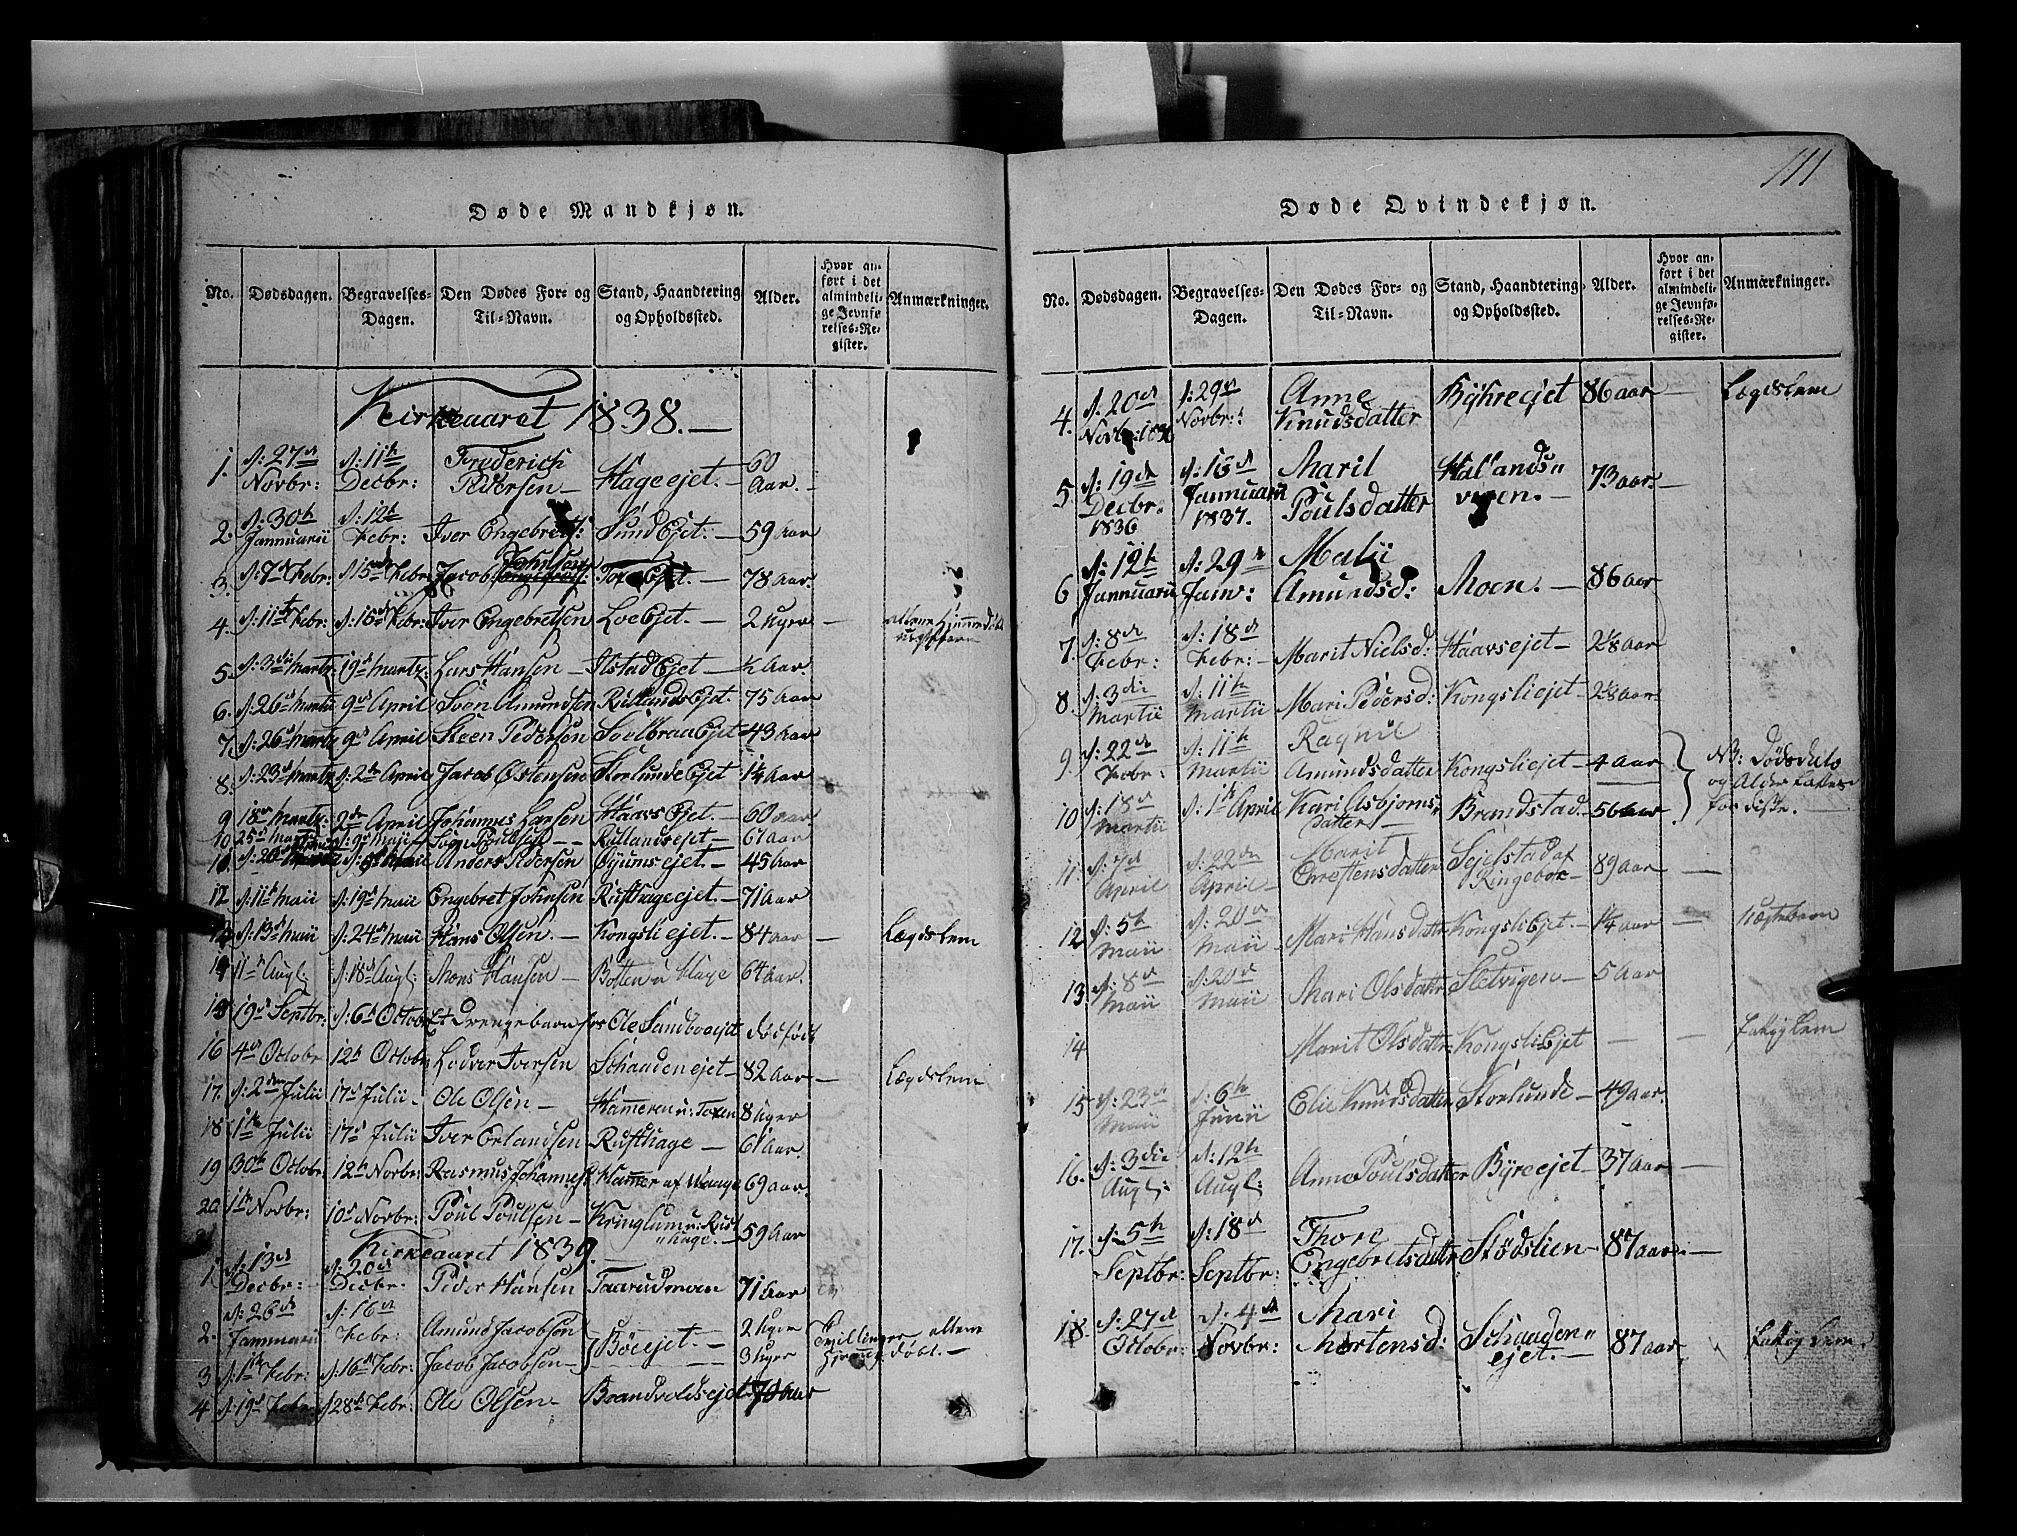 111
Døde Mandkjøn.
No. Dødsdagen. Begravelses-Dagen. Den Dødes For- og Til-Navn. Stand, Haandtering og Opholdssted. Alder. Hvor anført i det almindelige Jevnførelses-Register. Anmærkninger.
Kirkeaaret 1838.
1. d: 27de Novbr: d: 11te Decbr: Frederich Pedersen Hageejet. 60 Aar.
2. d: 30te Jannuarii d: 12te Febr: Iver Engebrets: Sund Ejet. 59 Aar
3. d: 7de Febr: d: 15de Febr: Jacob Johnsen 78 Aar.
4. d: 11te Febr: d: 16de Febr: Iver Engebretsen Loe Ejet. 2 Uger
5. d: 3die Martz: 19de Martz: Lars Hansen Ilstad Ejet ½ Aar.
6. d: 26de Martii 9de April Sven Amundsen Rullands Ejet. 75 Aar
7. d: 26de Martz 9de April Steen Pedersen Soelbraa Ejet 43 Aar
8. d: 23de Martz d: 2den April Jacob Østensen Storlunde Ejet 1¼ Aar
9 18de Martz: 2den April Johannes Larsen Haavs Ejet. 60 Aar
10 25de Martii Rullandsejet 61 Aar
11. Anders Pedersen Øyumsejet. 45 Aar
12 d: 11te Maii d: 19de Maii Engebret Johnsen Rusthageejet. 71 Aar
13 d: 13de Maii d: 24de Maii Hans Olsen. Kongsliejet. 84 Aar Lægdslem
14 11te Augl: d: 18de Augl: Mons Hansen Botten u Hage 64 Aar.
15 19de Septbr: d: 6te Octobr Et Drengebarn for Ole Sandboeejet dødfødt
16 4de Octobr 12te Octobr: Lodver Iversen Schaadenejet 82 Aar Lægdslem
17. d: 2den Julii 17de Julii Ole Olsen Hammeren u: Toxen 8 Uger
18 1te Julii 17de Julii Iver Erlandsen Rusthage 61 Aar.
19 30te Octobr: 12te Novbr: Rasmus Johannes: Hammer af Waage 69 Aar.
20. 1te Novbr: 10de Novbr: Poul Poulsen Kringlum u: Rusthage. 59 Aar
21
Kirkeaaret 1839.
1. d: 13de Decbr: d: 20de Decbr. Peder Hansen Taarudmoen 71 Aar
2. d: 26de Jannuarii d: 16de Febr: Amund Jacobsen Bøeejet. 2 Uger Tvillinger
3 d: 1te Febr: d: 16de Febr: Jacob Jacobsen 3 Uger
4 d: 19de Febr: d 28de Febr: Ole Olsen Brandvoldsejet 70 Aar
Døde Qvindekjøn.
No. Dødsdagen. Begravelses-Dagen. Den Dødes For- og Til-Navn. Stand, Haandtering og Opholdssted. Alder. Hvor anført i det almindelige Jevnførelses-Register. Anmærkninger.
4. d. 20de Novbr: 1836 d: 29de Novbr: Anne Knudsdatter Byhreejet 86 Aar Lægdslem
5 d: 19de Decbr. 1836 d: 16de Jannuarii 1837. Marit Poulsdatter Hallandsvigen. 73 Aar.
6 d: 12te Jannuarii d: 29de Janv: Malii Amundsd: Moen. 86 Aar
7. d: 8de Febr: d: 18de Febr: Marit Nielsd: Haavsejet 2⅛ Aar
8. d: 3die Martii d: 11te Martii Mari Pedersd: Kongsliejet 2⅛ Aar
9. d: 22de Febr: d: 11te Martii Ragnil Amundsdatter Kongsliejet 4 Aar NB: Dødsdato og Alder for disse.
10 d: 18de Martii d: 1te April Kari Asbjørnsdatter Brandstad 56 Aar
11 d: 7de April d: 22den April Marit Christensdatter Sejelstad af Ringeboe 89 Aar
12 d: 5te Maii d: 20de Maii Mari Hansdatter Kongsli Ejet 1¼ Aar Uægtebarn
13. d: 8de Maii d: 20de Maii Mari Olsdatter Sletvigen 5 Aar
14 Marit Olsdatter Kongsli Ejet Fattiglem
15 d: 23de Maii d: 6te Junii Elie Knudsdatter Storlunde 49 Aar
16. d: 3die Augl: d: 12te Augl: Anne Poulsdatter Byreejet 37 Aar
17. d: 5te Septbr: d: 18de Septbr: Thore Engebretsdatter Stødslien 87 Aar
18. d: 27de Octobr: d: 4de Novbr: Mari Mortensd: Schaadenejet. 87 Aar Fattiglem